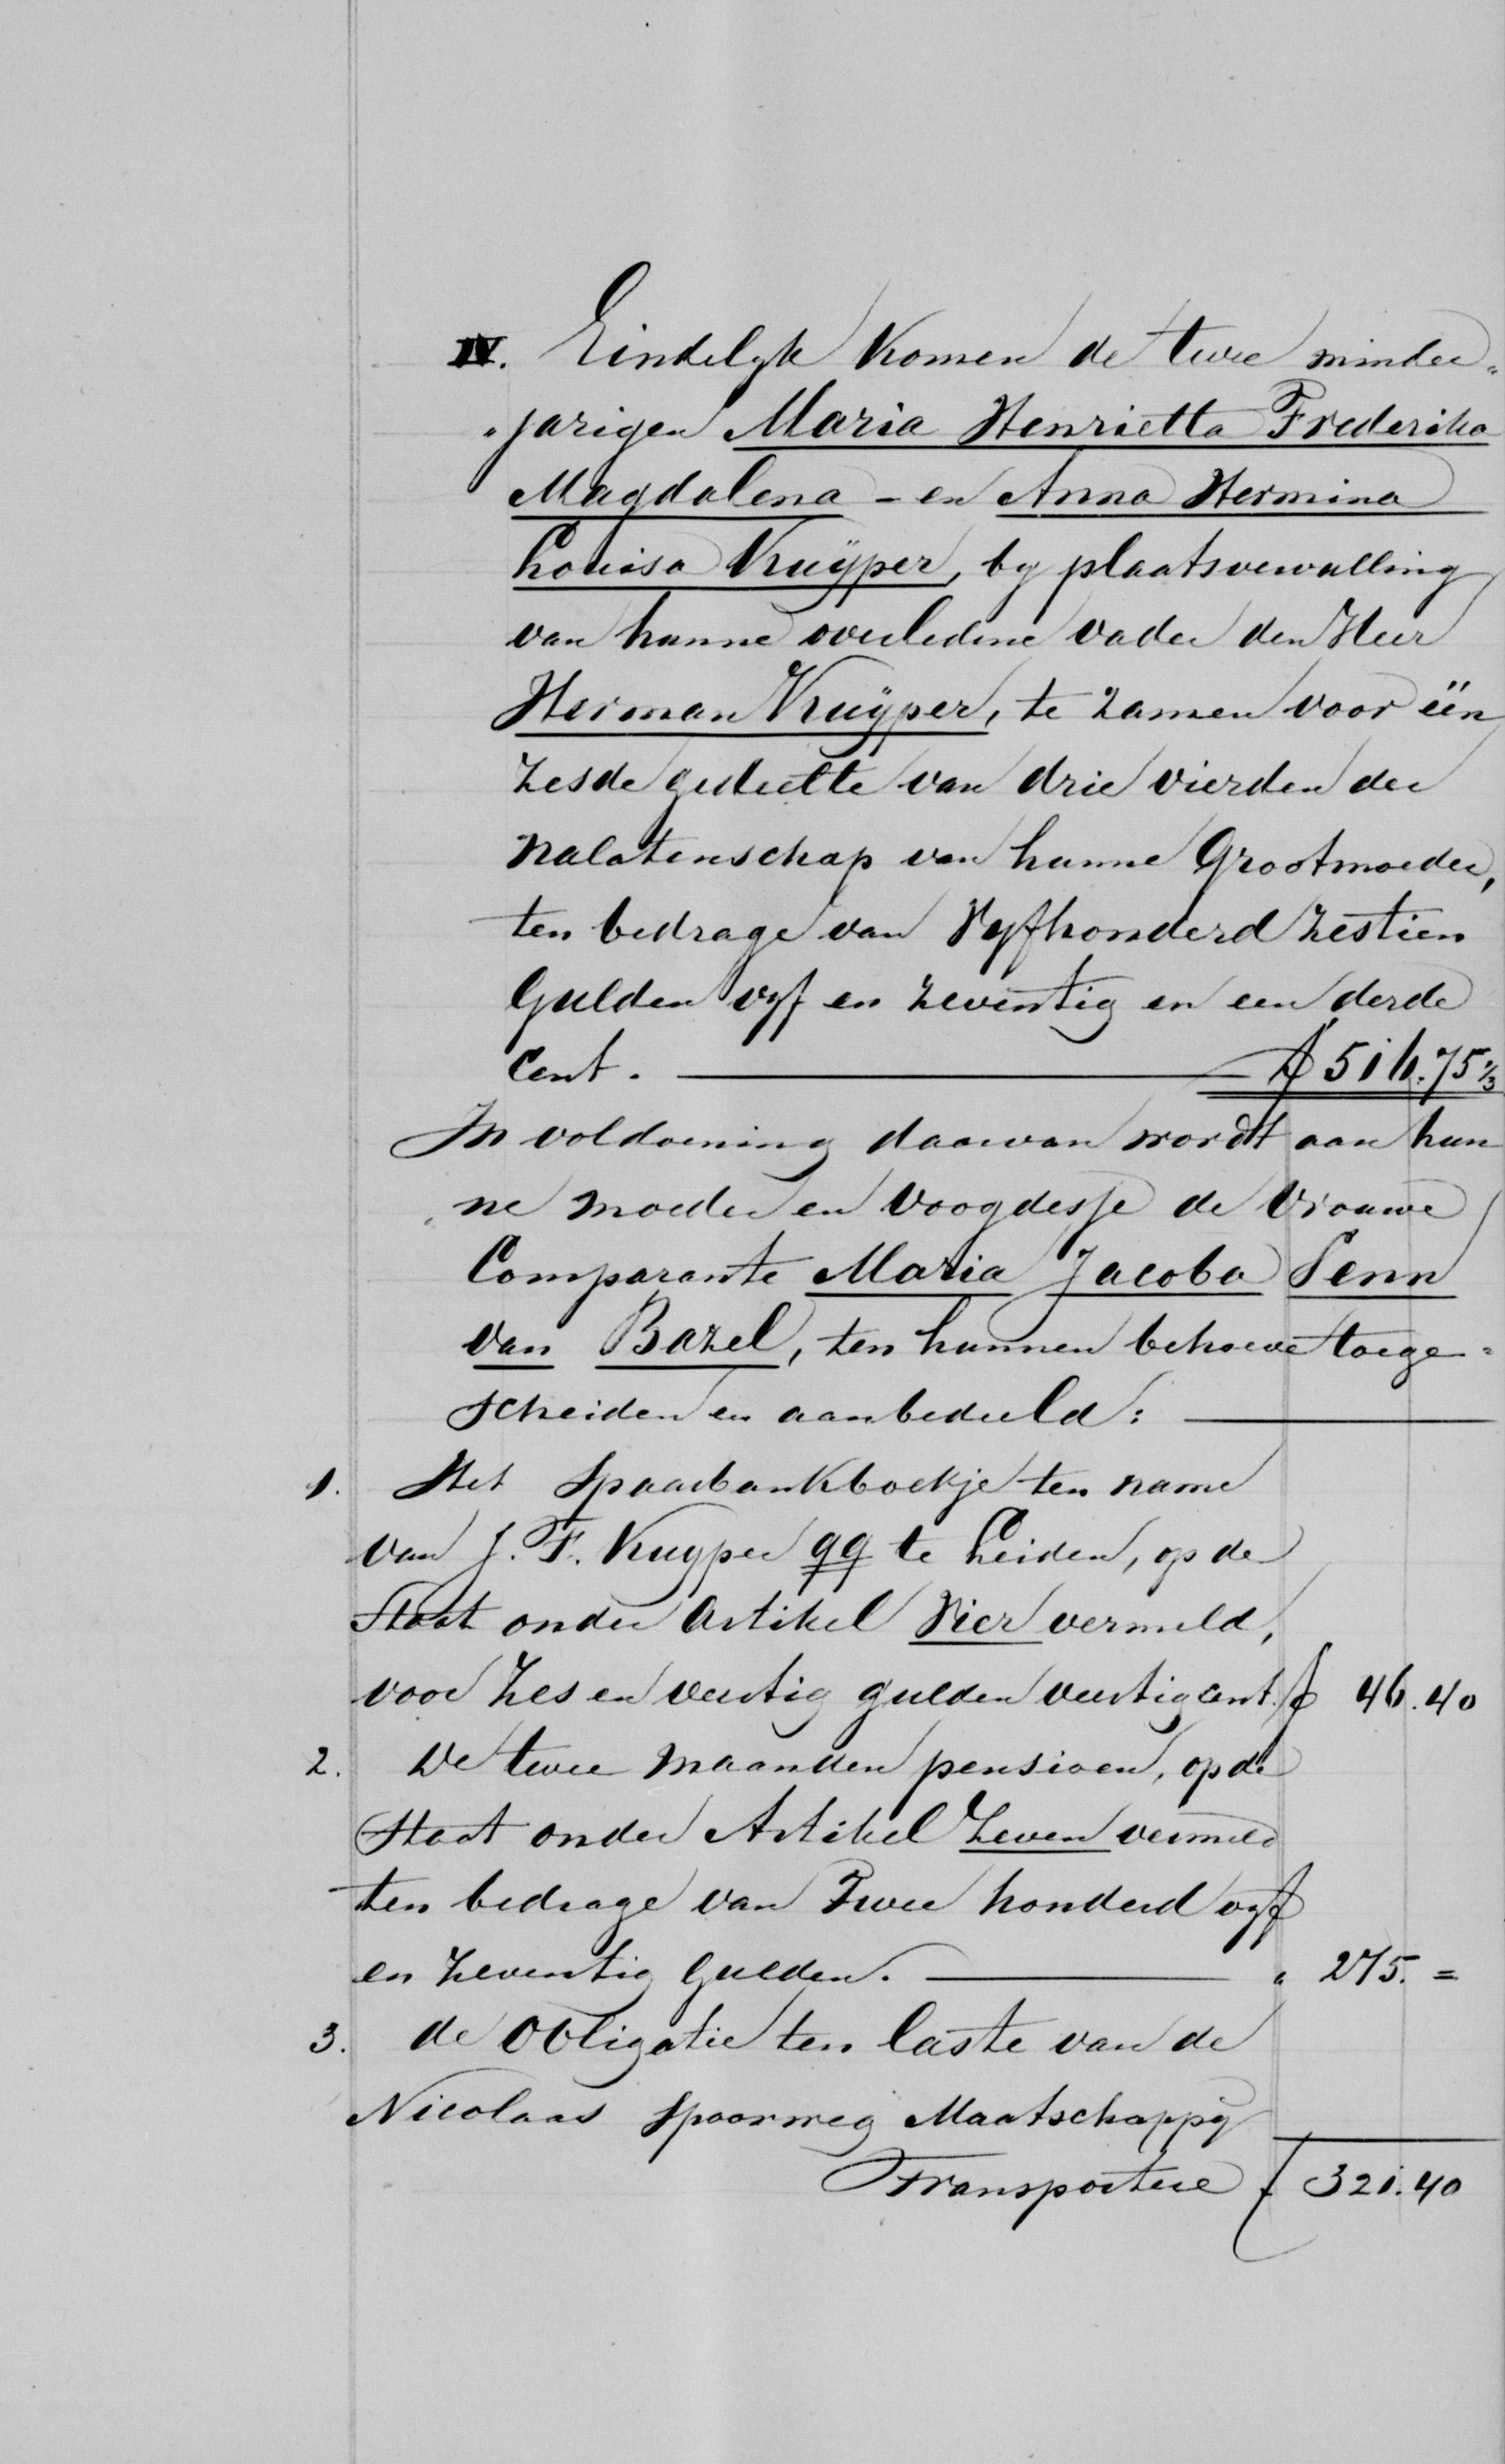 IV. Eindelyk komen de twee minder„
„jarigen Maria Henrietta Frederika
Magdalena - en Anna Hermina
Louisa Kuÿper, by plaatsvervulling
van hunne overledene vader den Heer
Herman Kuÿper, te zamen voor één
zesde gedeelte van drie vierden der
nalatenschap van hunne Grootmoeder,
ten bedrage van Vyfhonderd zestien
Gulden vyf en zeventig en een derde
Cent. ƒ 516.75 1/3
In voldoening daarvan wordt aan hun
„ne moeder en voogdesse de Vrouwe
Comparante Maria Jacoba Penn
van Bazel, ten hunnen behoeve toege„
scheiden en aanbedeeld:
1. Het Spaarbankboekje ten name
van J. F. Kuyper qq te Leiden, op de
Staat onder Artikel Vier vermeld,
voor Zes en veertig gulden veertig cent. ƒ 46.40
2. De twee maanden pensioen, op de
Staat onder Artikel Zeven vermeld
ten bedrage van Twee honderd vyf
en zeventig Gulden. „ 275. =
3. de Obligatie ten laste van de
Nicolaas Spoorweg Maatschappy
Transportere ƒ 321.40